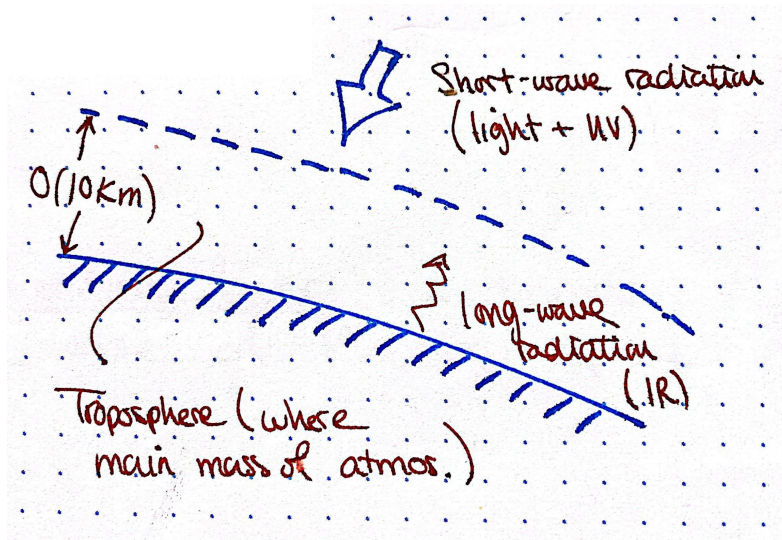 Short-wave radiation
(light + UV)
O(10Km)
long-wave
radiation
(IR)
Troposphere (where
main mass of atmos.)